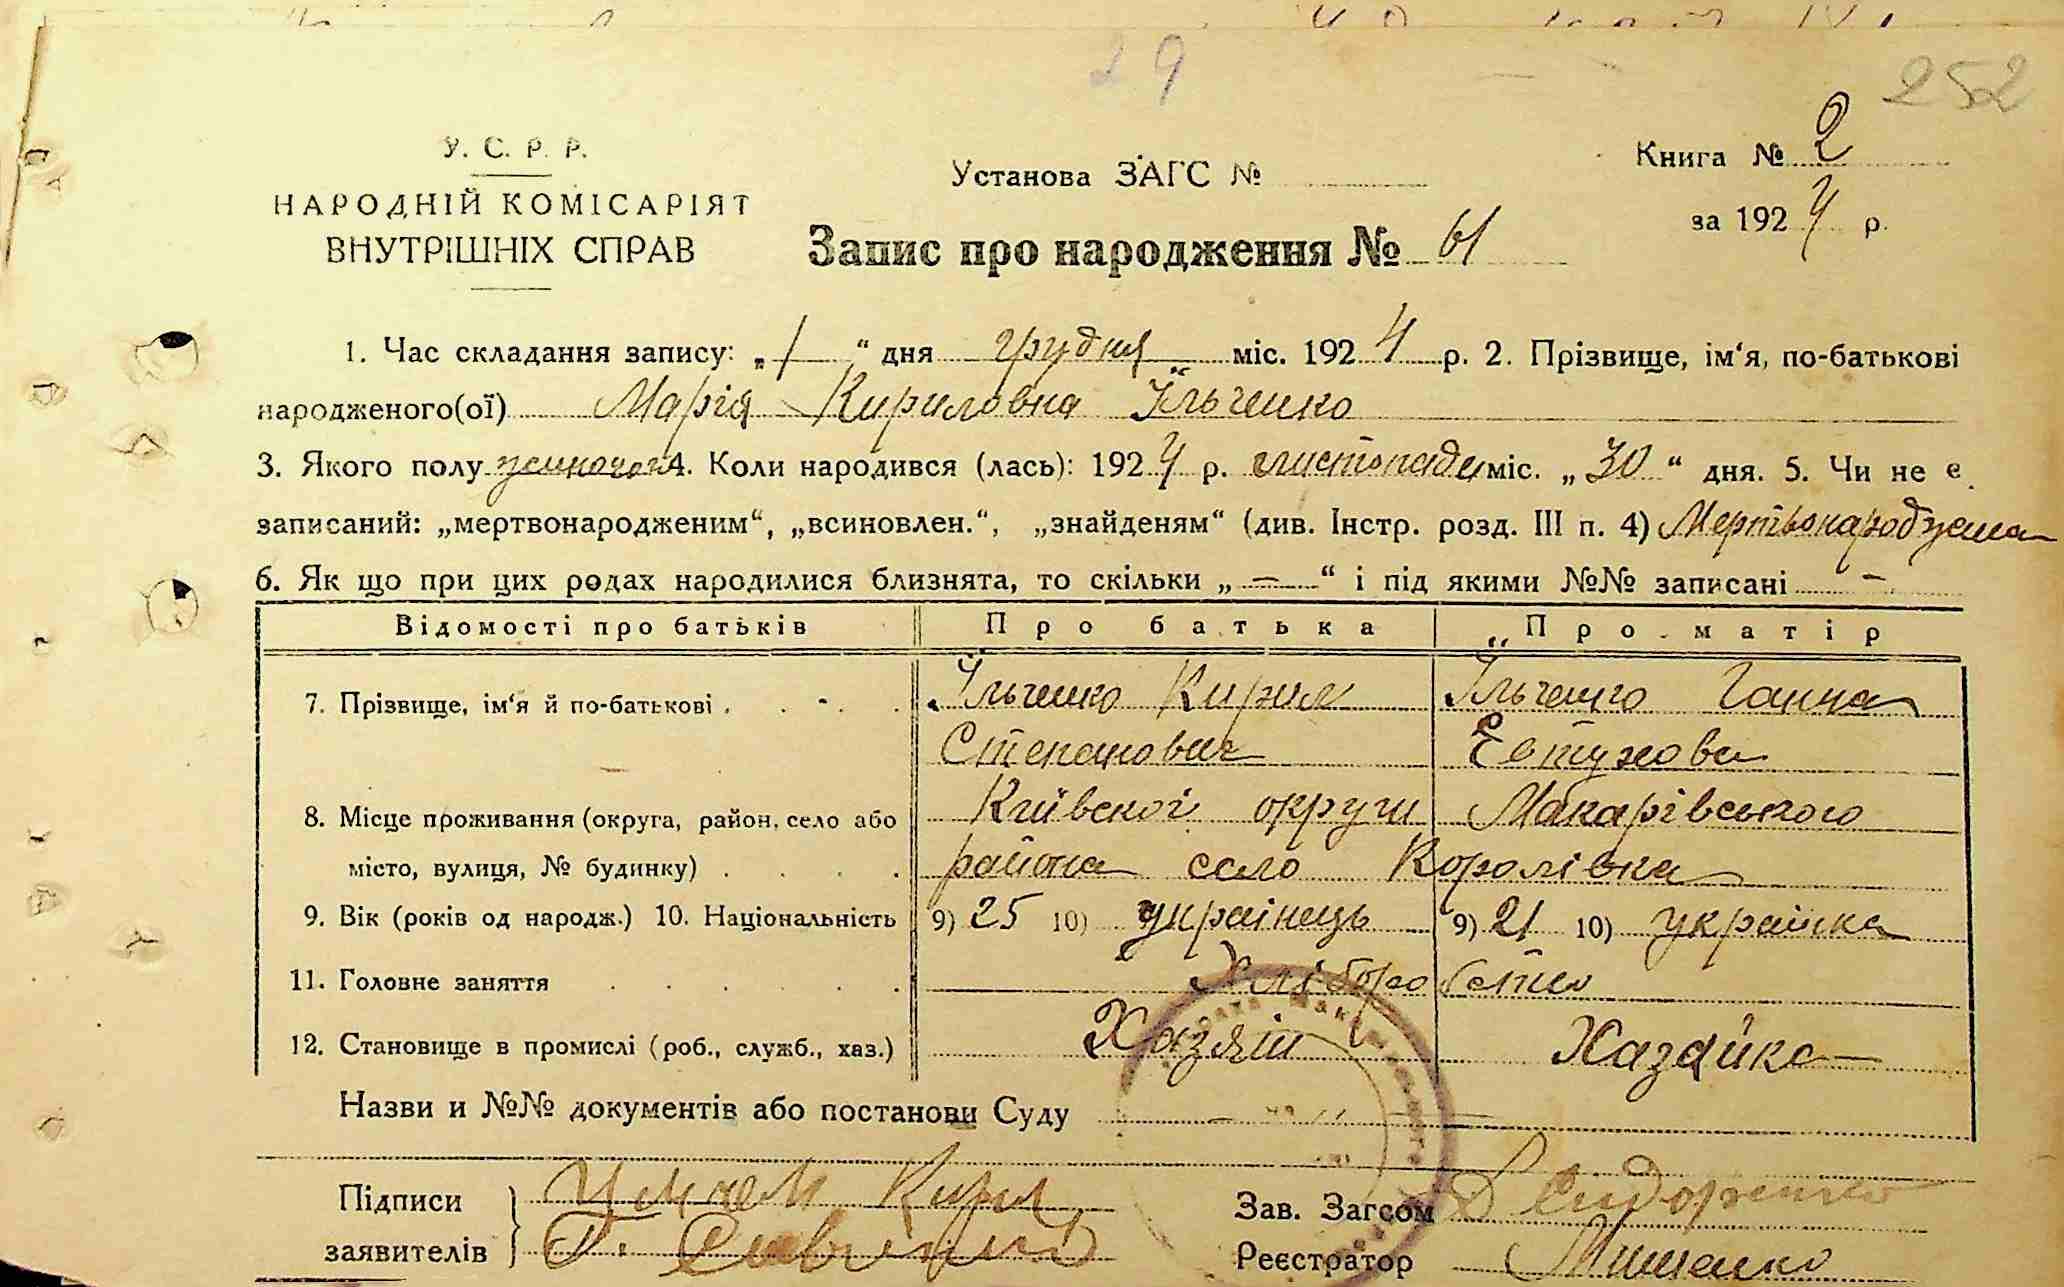 29
252
У. С. Р. Р.
НАРОДНІЙ КОМІСАРІЯТ
ВНУТРІШНІХ СПРАВ
Установа ЗАГС №
Книга № 2
за 1924 р.
Запис про народження № 61
1. Час складання запису: „1“ дня грудня міс. 1924 р. 2. Прізвище, ім‘я, по-батькові
народженого(ої) Марія Кириловна Їльченко
3. Якого полу жиночого 4. Коли народився (лась): 1924 р. листопада міс. „30“ дня. 5. Чи не є
записаний: „мертвонародженим“, „всиновлен.“, „знайденям“ (див. Інстр. розд. III п. 4) Мертвонароджена
6. Як що при цих родах народилися близнята, то скільки „—“ і під якими №№ записані —
Відомості про батьків Про батька Про матір
7. Прізвище, ім‘я й по-батькові Їльченко Кирил Їльченко Ганна
Степанович Евтухова
8. Місце проживання (округа, район, село або Київскої округи Макарівського
місто, вулиця, № будинку) района село Королівка
9. Вік (років од народж.) 10. Національність 9) 25 10) украінець 9) 21 10) украінка
11. Головне заняття Хліборобство
12. Становище в промислі (роб., служб., хаз.) Хазяін Хазайка
Назви и №№ документів або постанови Суду —
Підписи
заявителів
Зав. Загсом Сидоренко
Реєстратор Мищенко